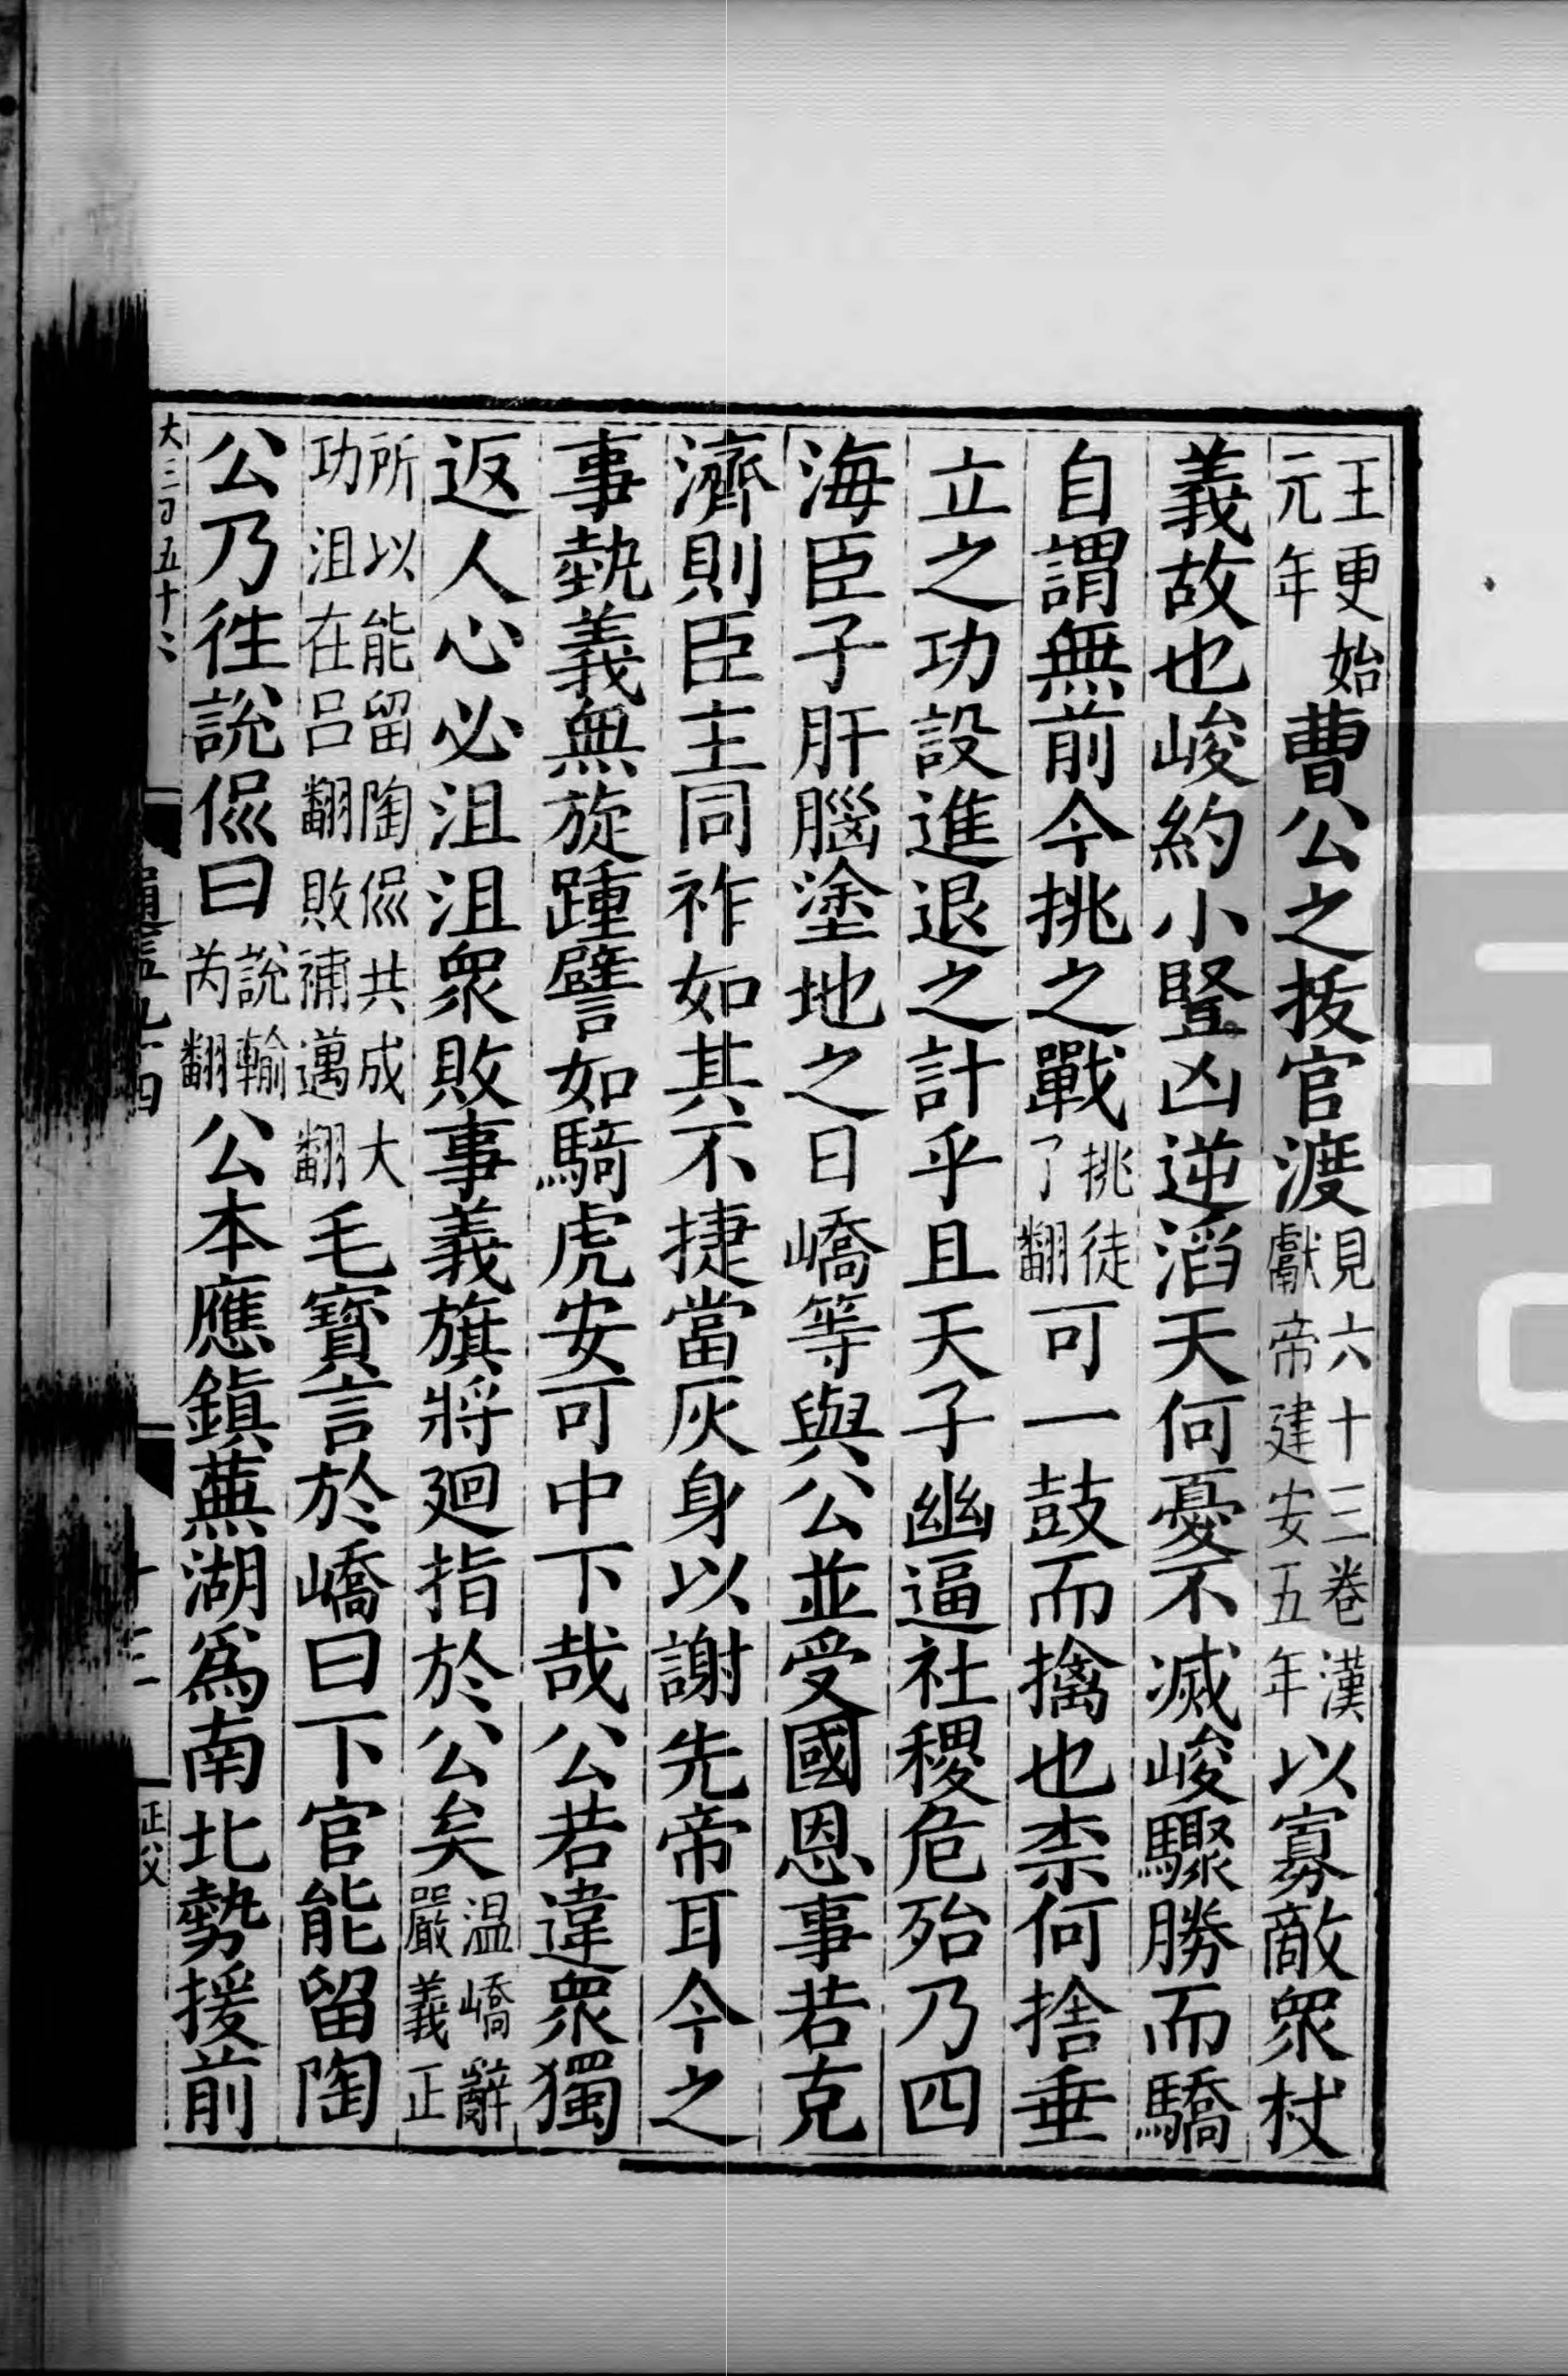 王更始元年曹公之拔官渡見六十三卷漢獻帝建安五年以寡敵衆杖
義故也峻約小豎凶逆滔天何憂不滅峻驟勝而驕
自謂無前今挑之戰挑徒了翻可一鼓而擒也柰何捨垂
立之功設進退之計乎且天子幽逼社稷危殆乃四
海臣子肝腦塗地之日嶠等與公並受國恩事若克
濟則臣主同祚如其不捷當灰身以謝先帝耳今之
事埶義無旋踵譬如騎虎安可中下哉公若違衆獨
返人心必沮沮衆敗事義旗將廻指於公矣温嶠辭嚴義正
所以能留陶侃共成大功沮在呂翻敗補邁翻毛寶言於嶠曰下官能留陶
公乃徃說侃曰說輸芮翻公本應鎮蕪湖爲南北勢援前